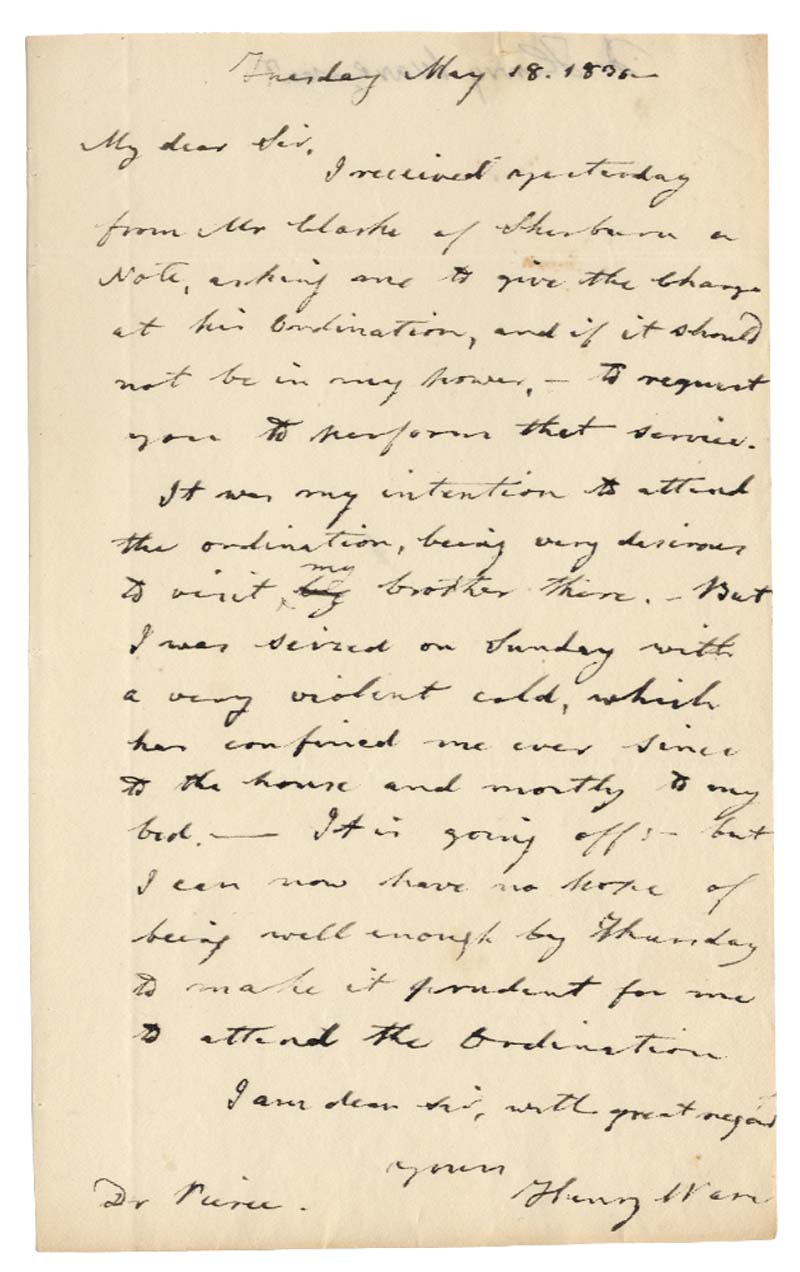 Tuesday May 18. 1830
My dear Sir.
I received yesterday
from Mr Clarke of Sherburn a
Note, asking me to give the Charge
at his Ordination, and if it should
not be in my power, – to request
you to perform that service.
It was my intention to attend
the ordination, being very desirous
my
to visit brother there. – But
I was seized on Sunday with
a very violent cold, which
has confined me ever since
to the house and mostly to my
bed. — It is going off: – but
I can now have no hope of
being well enough by Thursday
to make it prudent for me
to attend the Ordination
I am dear sir, with great regard
yours
Dr Pierce. Henry Ware